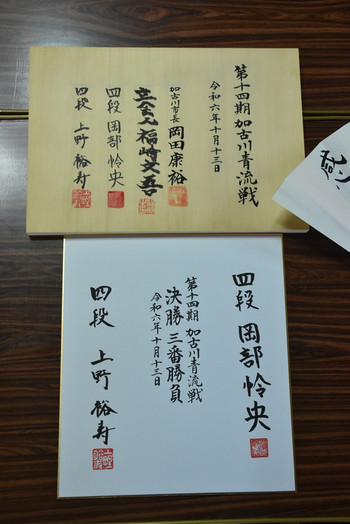 第十四期加古川青流戦
令和六年十月十三日
加古川市長 岡田康裕
立会人 福崎文吾
四段 岡部怜央
四段 上野裕寿
四段 岡部怜央
第十四期 加古川青流戦
決勝三番勝負
令和六年十月十三日
四段 上野裕寿